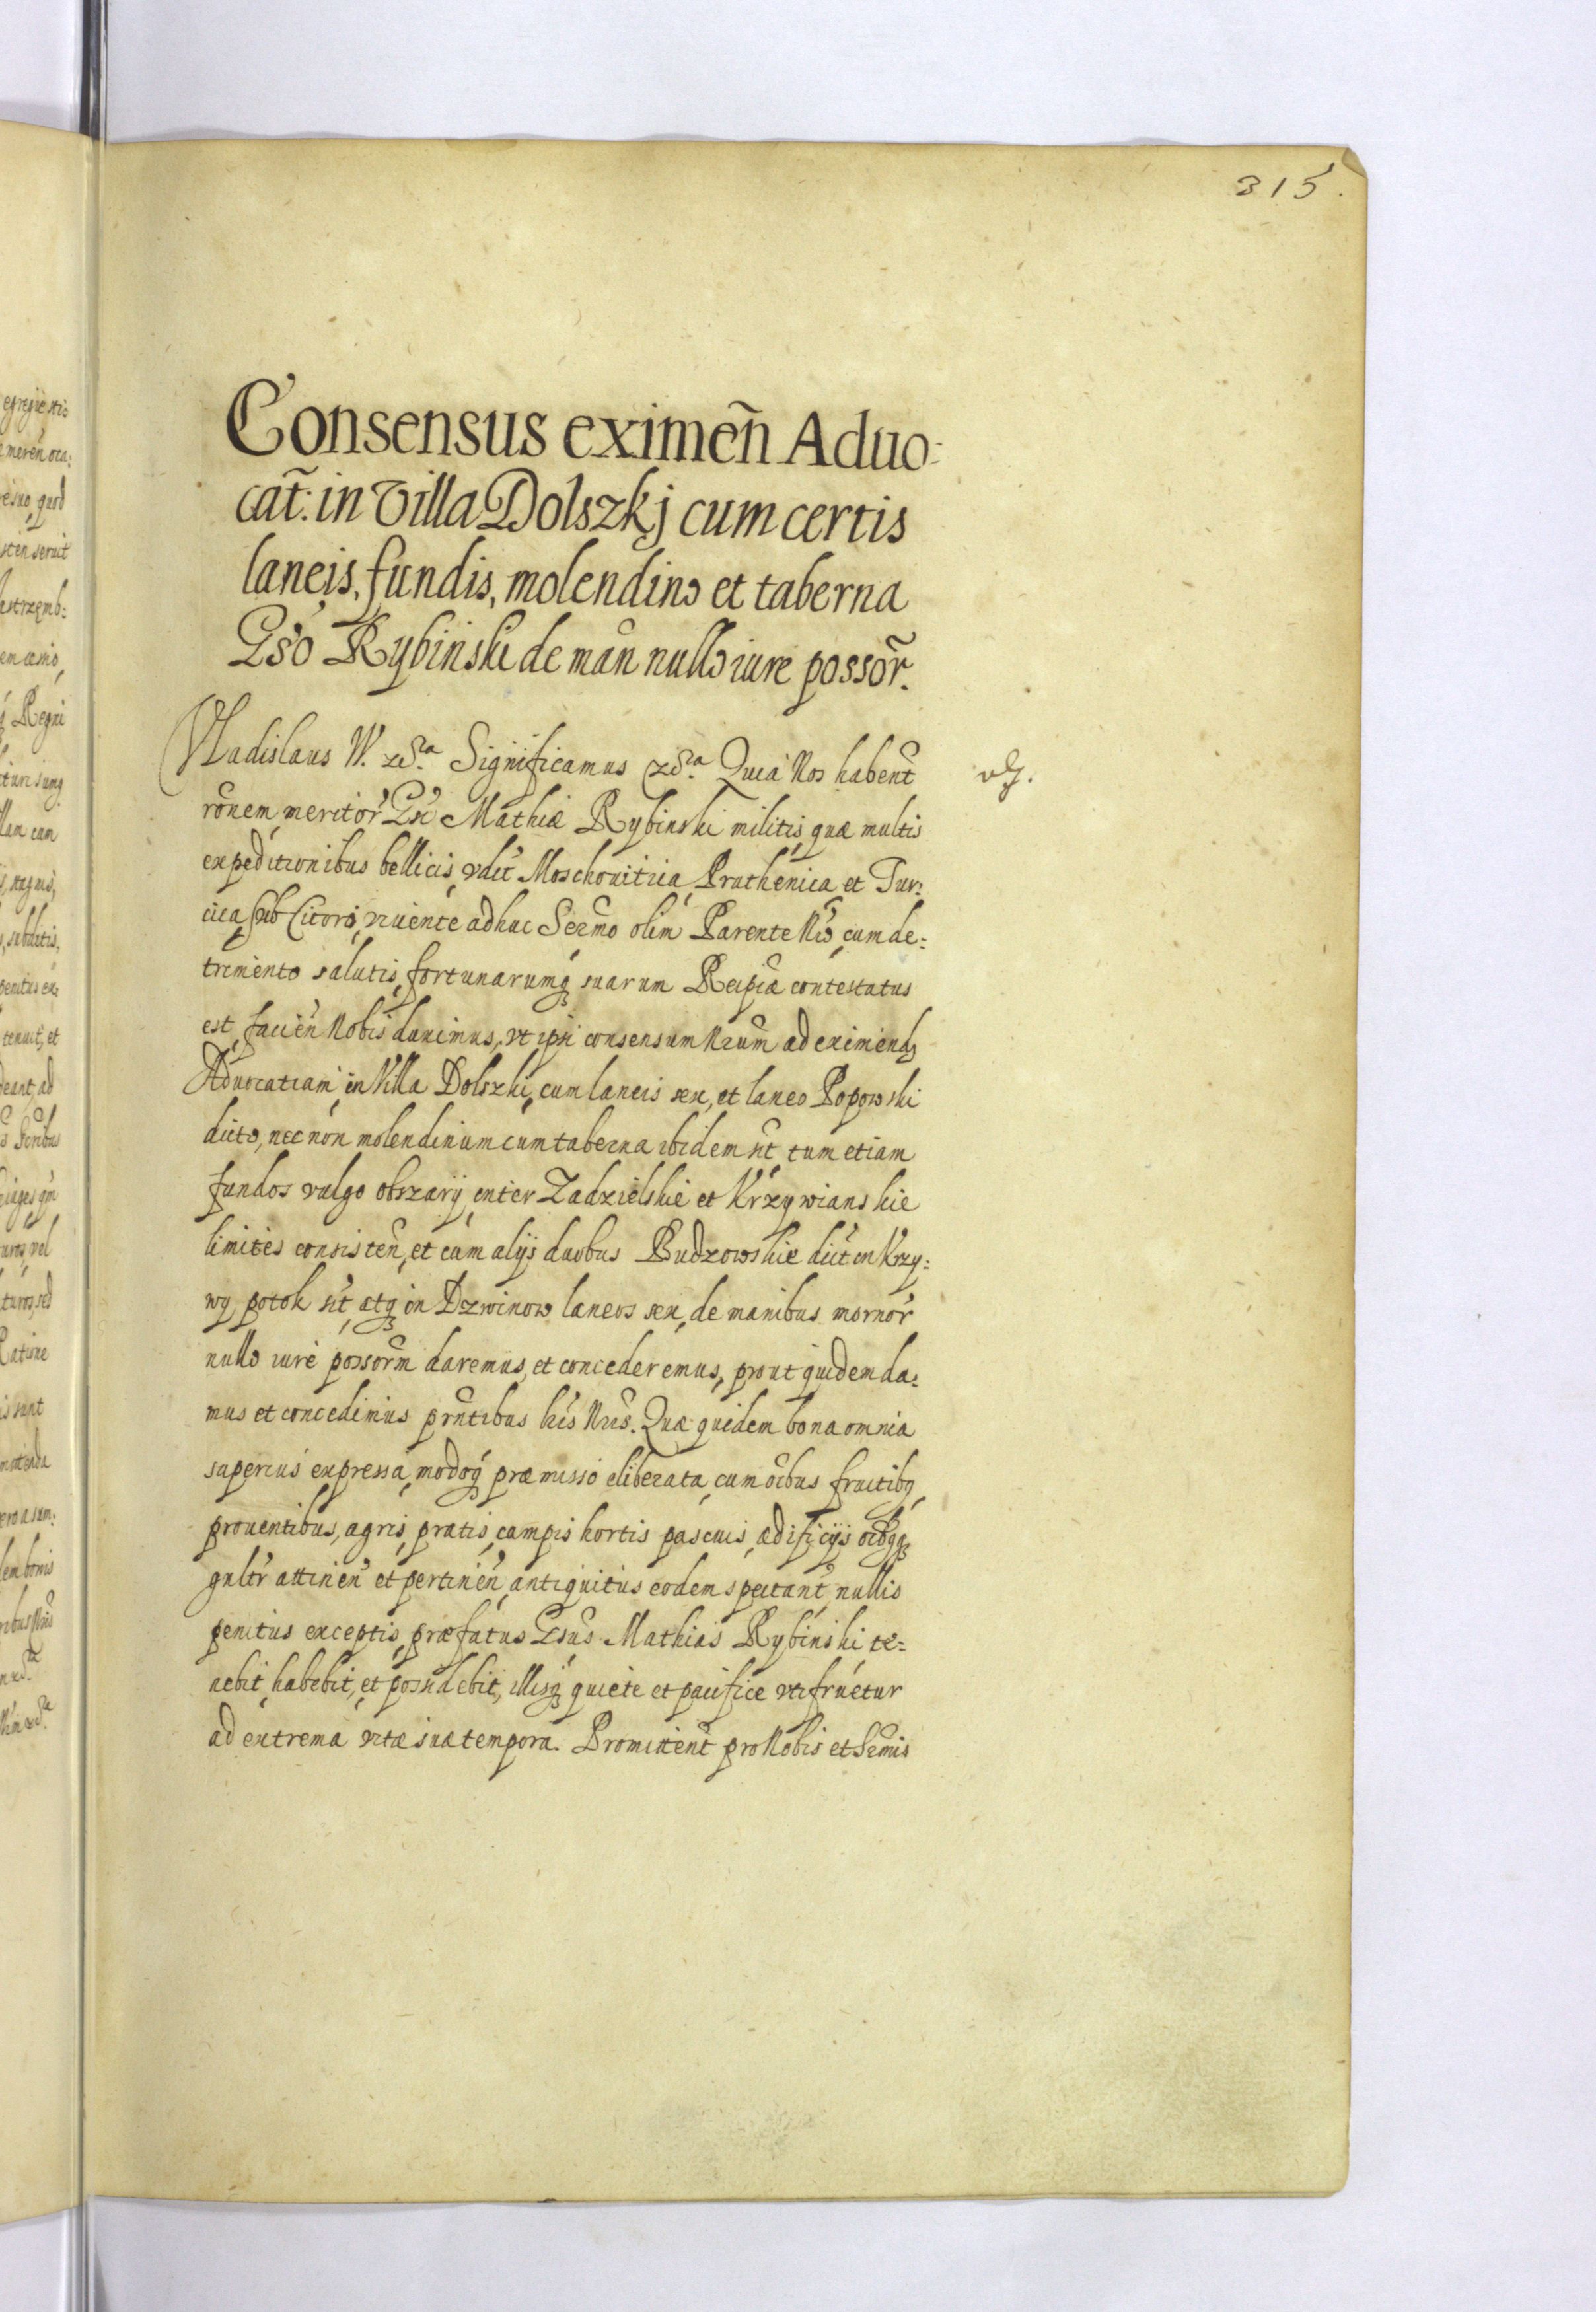 315.
Consensus eximeñ Aduo:
cat̃: in Villa Dolszkj cum certis
laneis, fundis, molendino et taberna
Gso Rybinski de mañ nullo iure possor̃.
Vladislaus IV. &c̃a Significamus &c̃a Quia Nos habent̃
rõnem meritor Gsi Mathiæ Rybinski militis, quæ multis
expeditionibus bellicis, vdit Moschouitica, Pruthenica et Tur:
cica, sub viuente adhuc Sermo olim Parente Nro, cum de:
trimento salutis, fortunarumq́ suarum Reipcæ contestatus
est, facień Nobis duximus, vt ipsi consensum Nrum ad eximend
Aduocatiam in Villa Dolszki, cum laneis sex, et laneo Popowski
dicto, nec non molendinum cum taberna ibidem sit̃ tum etiam
fundos vulgo obszary, inter Zadzielskie et Krzywianskie
limites consisteñ, et cum alijs duobus Budzowskie dict in Krzy:
wy potok sit̃, atq in Dzwinow laneos sex, de manibus mornor̃
nullo iure possorm daremus, et concederemus, prout quidem da:
mus et concedimus prñtibus his Nris. Quæ quidem bona omnia
superius expressa, modoq́ præmisso eliberata, cum oibus fructibq
prouentibus, agris, pratis, campis hortis pascuis, ædificijs oibqq
gnltr attineñ et pertineñ, antiquitus eodem spectant̃, nullis
penitus exceptis, præfatus Gsus Mathias Rybinski te:
nebit, habebit, et possidebit, illisq́ quiete et pacifice vtifruetur
ad extrema vitæ suæ tempora. Promittent̃ pro Nobis et Sermis